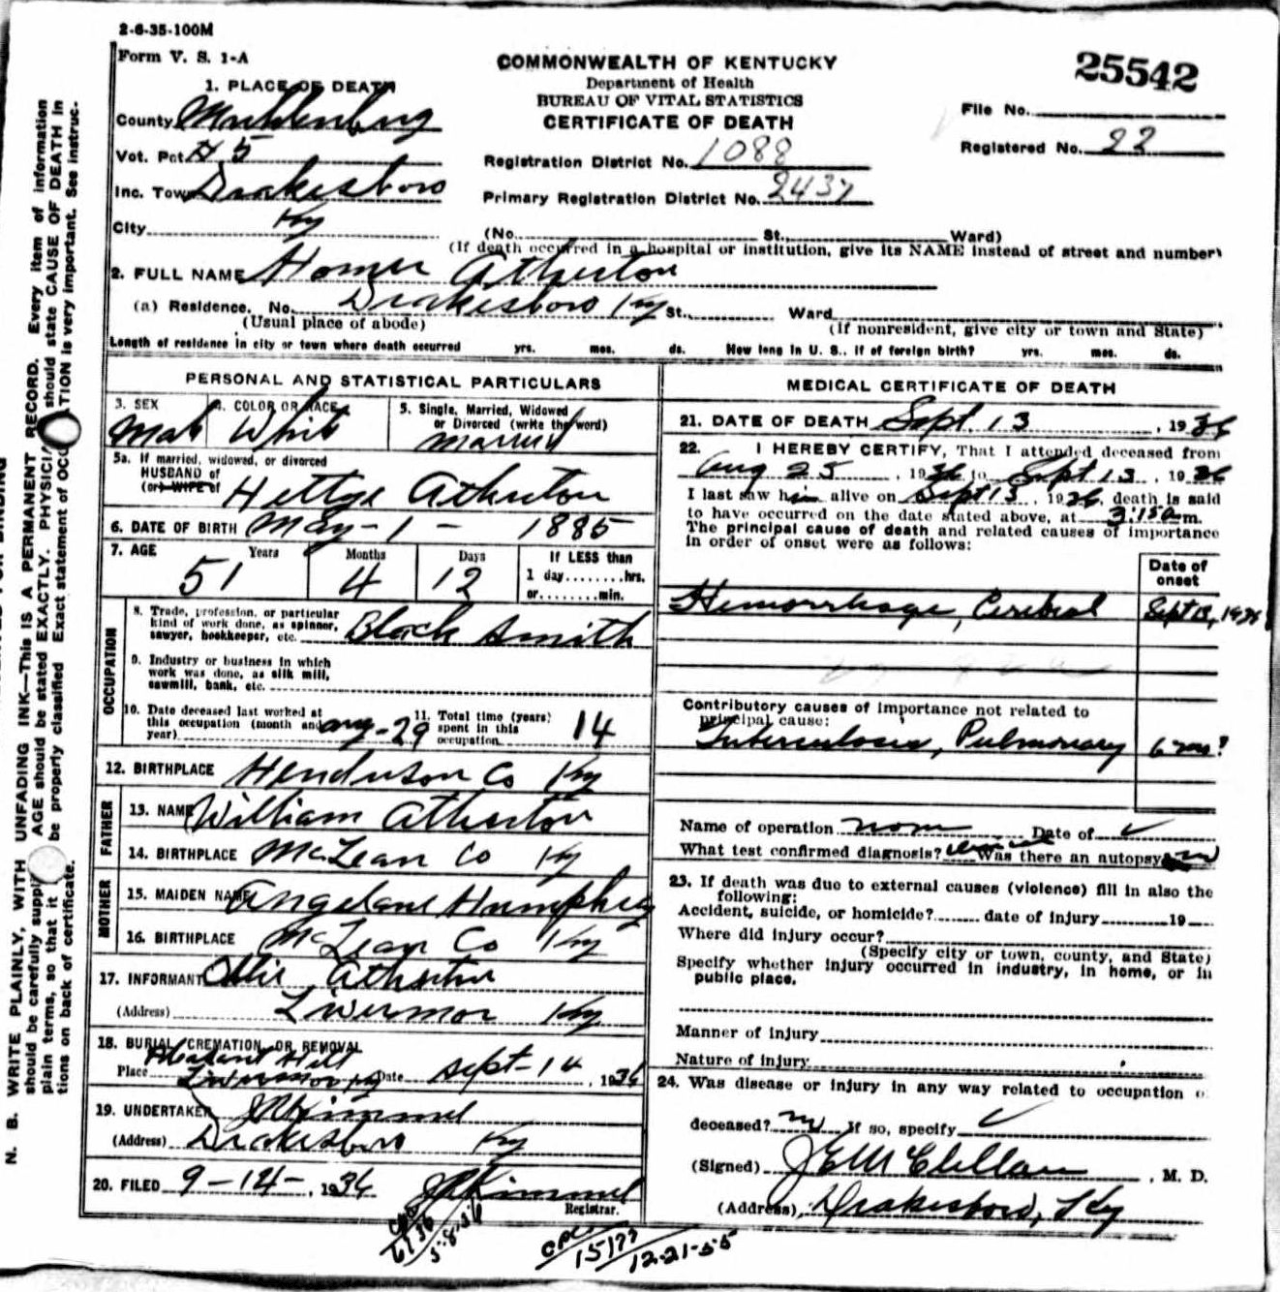 2-6-35-100M
Form V. S. 1-A
COMMONWEALTH OF KENTUCKY
Department of Health
BUREAU OF VITAL STATISTICS
CERTIFICATE OF DEATH
25542
File No.
Registered No. 22
1. PLACE OF DEATH
County Muhlenburg
Vot. Pct. # 5
Inc. Town Drakesboro
City Ky
Registration District No. 1088
Primary Registration District No. 2437
(No. St., Ward)
(If death occurred in a hospital or institution, give its NAME instead of street and number)
2. FULL NAME Homer Atherton
(a) Residence. No. Drakesboro Ky St., Ward
(Usual place of abode) (If nonresident, give city or town and State)
Length of residence in city or town where death occurred yrs. mos. ds. How long in U. S., if of foreign birth? yrs. mos. ds.
PERSONAL AND STATISTICAL PARTICULARS
3. SEX 4. COLOR OR RACE 5. Single, Married, Widowed
or Divorced (write the word)
Male White Married
5a. If married, widowed, or divorced
HUSBAND of
(or) WIFE of Hettye Atherton
6. DATE OF BIRTH May - 1 - 1885
7. AGE Years Months Days If LESS than
51 4 12 1 day ........hrs.
or ........min.
OCCUPATION
8. Trade, profession, or particular
kind of work done, as spinner,
sawyer, bookkeeper, etc. Black Smith
9. Industry or business in which
work was done, as silk mill,
sawmill, bank, etc.
10. Date deceased last worked at
this occupation (month and
year) Aug-29
11. Total time (years)
spent in this
occupation 14
12. BIRTHPLACE Henderson Co Ky
FATHER
13. NAME William Atherton
14. BIRTHPLACE McLean Co Ky
MOTHER
15. MAIDEN NAME Angelane Humphrey
16. BIRTHPLACE McLean Co Ky
17. INFORMANT Ollie Atherton
(Address) Livermor Ky
18. BURIAL, CREMATION, OR REMOVAL
Place Pleasant Hill
Livermor Ky Date Sept-14, 1936
19. UNDERTAKER J Kimmel
(Address) Drakesboro Ky
20. FILED 9-14-, 1936 Kimmel
Registrar.
MEDICAL CERTIFICATE OF DEATH
21. DATE OF DEATH Sept. 13, 1936
22. I HEREBY CERTIFY, That I attended deceased from
Aug 25, 1936 to Sept 13, 1936
I last saw him alive on Sept 13, 1936, death is said
to have occurred on the date stated above, at 3:15 m.
The principal cause of death and related causes of importance
in order of onset were as follows:
Date of
onset
Hemorrhage, Cerebral Sept 13, 1936
Contributory causes of importance not related to
principal cause:
Tuberculosis, Pulmonary 6 yrs?
Name of operation none Date of ✓
What test confirmed diagnosis? clinical Was there an autopsy no
23. If death was due to external causes (violence) fill in also the
following:
Accident, suicide, or homicide? date of injury 19
Where did injury occur?
(Specify city or town, county, and State)
Specify whether injury occurred in industry, in home, or in
public place.
Manner of injury
Nature of injury
24. Was disease or injury in any way related to occupation o
deceased? no If so, specify ✓
(Signed) J E McClellan, M. D.
(Address) Drakesboro, Ky
5-8-56
15177
12-21-55
N. B. WRITE PLAINLY, WITH UNFADING INK—This IS A PERMANENT RECORD. Every item of information
should be carefully suppli AGE should be stated EXACTLY. PHYSICIA should state CAUSE OF DEATH in
plain terms, so that it be properly classified. Exact statement of OCC TION is very important. See instruc-
tions on back of certificate.